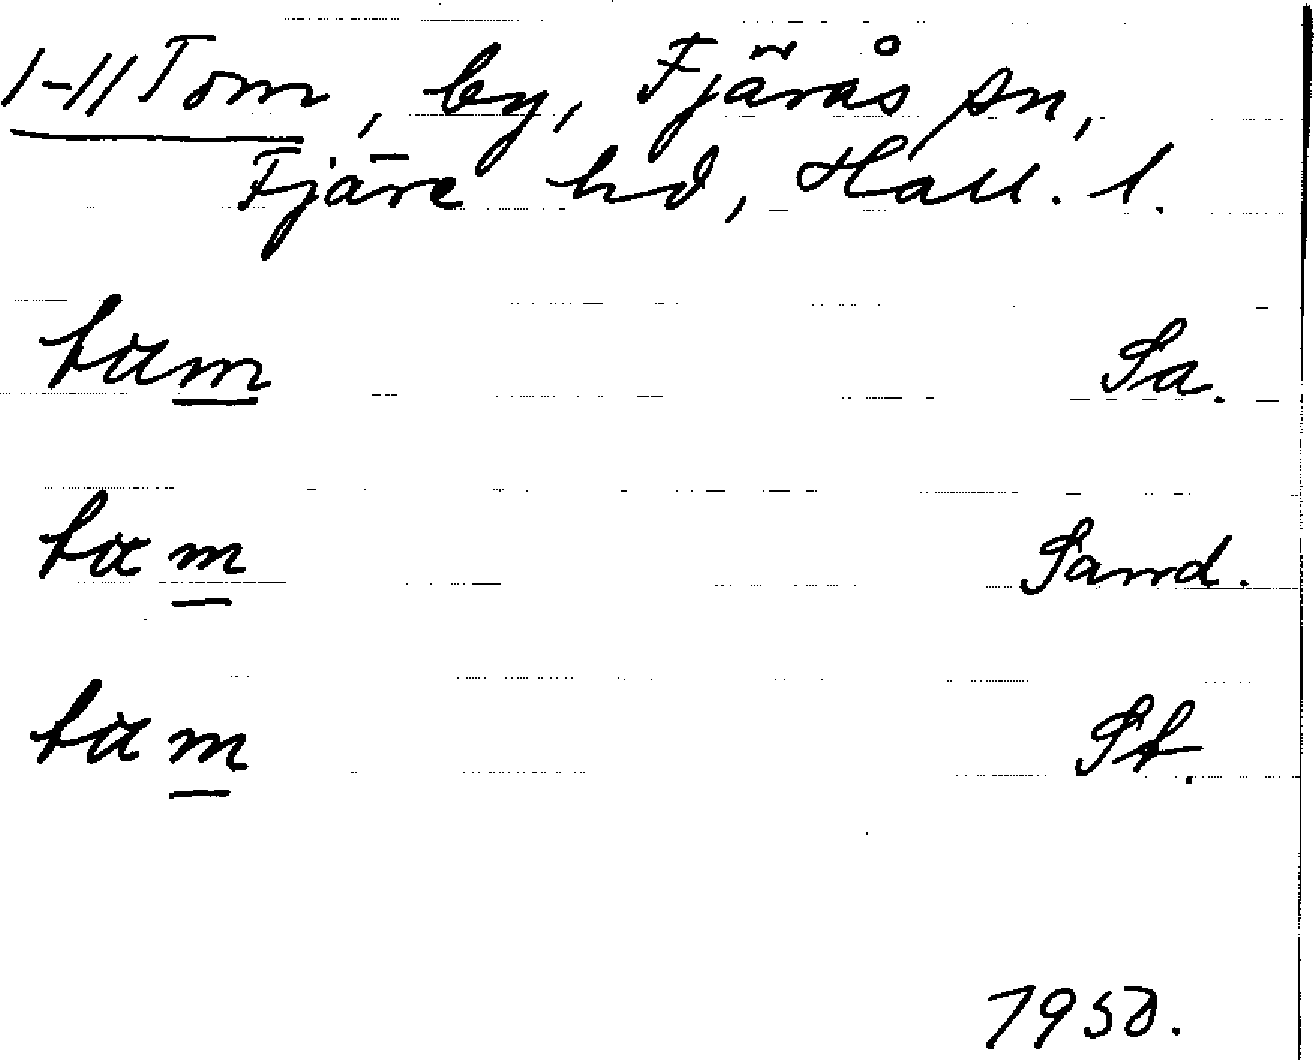 1-11 Tom, by, Fjärås sn,
Fjäre hd, Hall. l.
tɷm Sa.
tɷm Sand.
tɷm St.
1950.